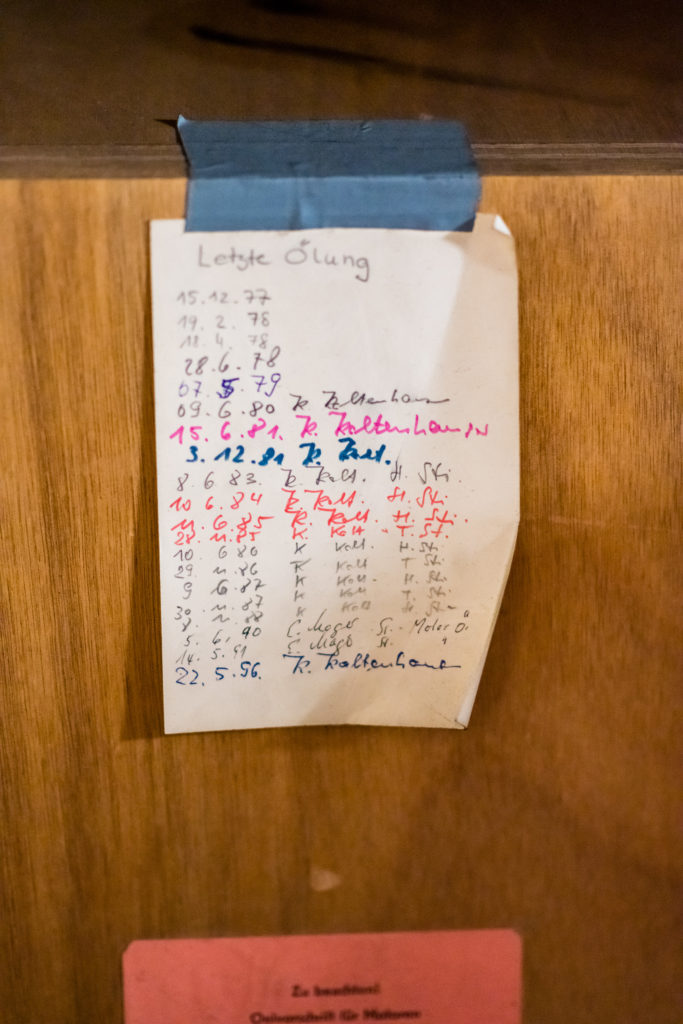 Letzte Ölung
15.12.77
19. 2. 78
18. 4. 78
28. 6. 78
07. 5 79
09. 6. 80 K Kaltenhaus
15. 6. 81. K. Kaltenhauser
3. 12. 81 K. Kalt.
8. 6 83. K. Kalt. H. Sti.
10 6. 84 K. Kalt. H. Sti.
11. 6. 85 K. Kalt. H. Sti.
28. 11. 85 K. Kalt. T. Sti.
10 6 80 K Kalt. H. Sti.
29. 11. 86 K Kalt T. Sti.
9 6. 87 K Kalt. H. Sti
30. 11. 87 K Kalt T. Sti.
8. 11. 88 K Kalt H. Sti
5. 6. 90 St. Motor Ö.
14. 5. 91 St. "
22. 5. 96. K. Kaltenhauser
Zu beachten!
für Motoren